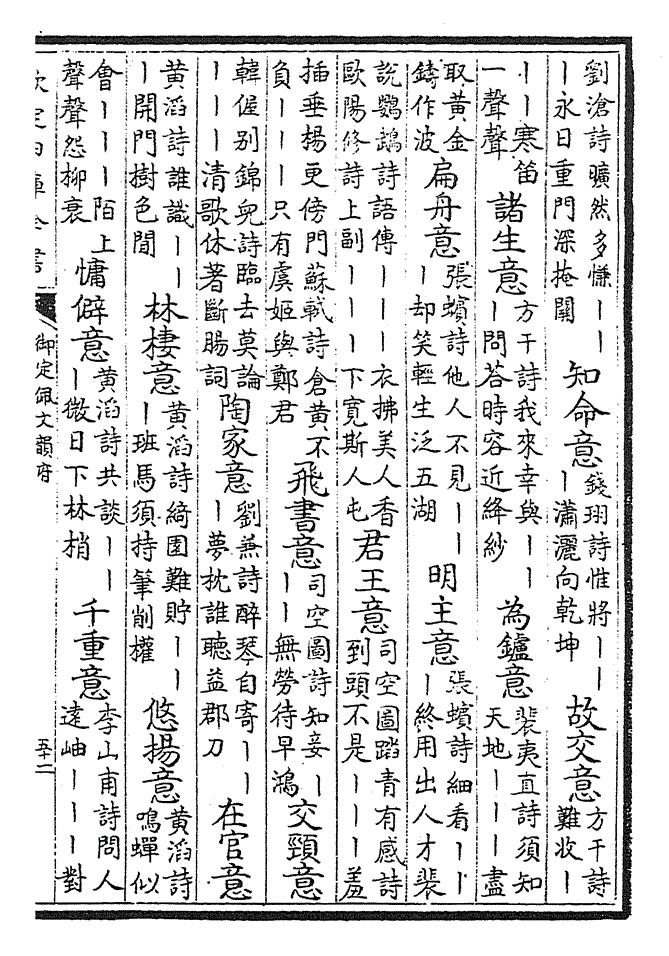 劉滄詩曠然多慊丨丨丨永日重門深掩關知命意錢珝詩惟將丨丨丨瀟灑向乾坤故交意方干詩難收丨
丨丨寒笛一聲聲諸生意方干詩我來幸與丨丨丨問荅時容近絳紗為鑪意裴夷直詩須知天地丨丨丨盡
取黄金鑄作波扁舟意張蠙詩他人不見丨丨丨却笑輕生泛五湖明主意張蠙詩細看丨丨丨終用出人才裴
說鸚鵡詩語傳丨丨丨衣拂美人香歐陽修詩上副丨丨丨下寬斯人屯君王意司空圖踏青有感詩到頭不是丨丨丨羞
插垂楊更傍門蘇軾詩倉黄不負丨丨丨只有虞姬與鄭君飛書意司空圖詩知妾丨丨丨無勞待早鴻交頸意
韓偓别錦兒詩臨去莫論丨丨丨清歌休著斷腸詞陶家意劉兼詩醉琴自寄丨丨丨夢枕誰聽益郡刀在官意
黄滔詩誰識丨丨丨開門樹色間林棲意黄滔詩綺園難貯丨丨丨班馬須持筆削權悠揚意黄滔詩鳴蟬似
會丨丨丨陌上聲聲怨柳衰慵僻意黄滔詩共談丨丨丨微日下林梢千重意李山甫詩問人遠岫丨丨丨對
欽定四庫全書
御定佩文韻府
五十二